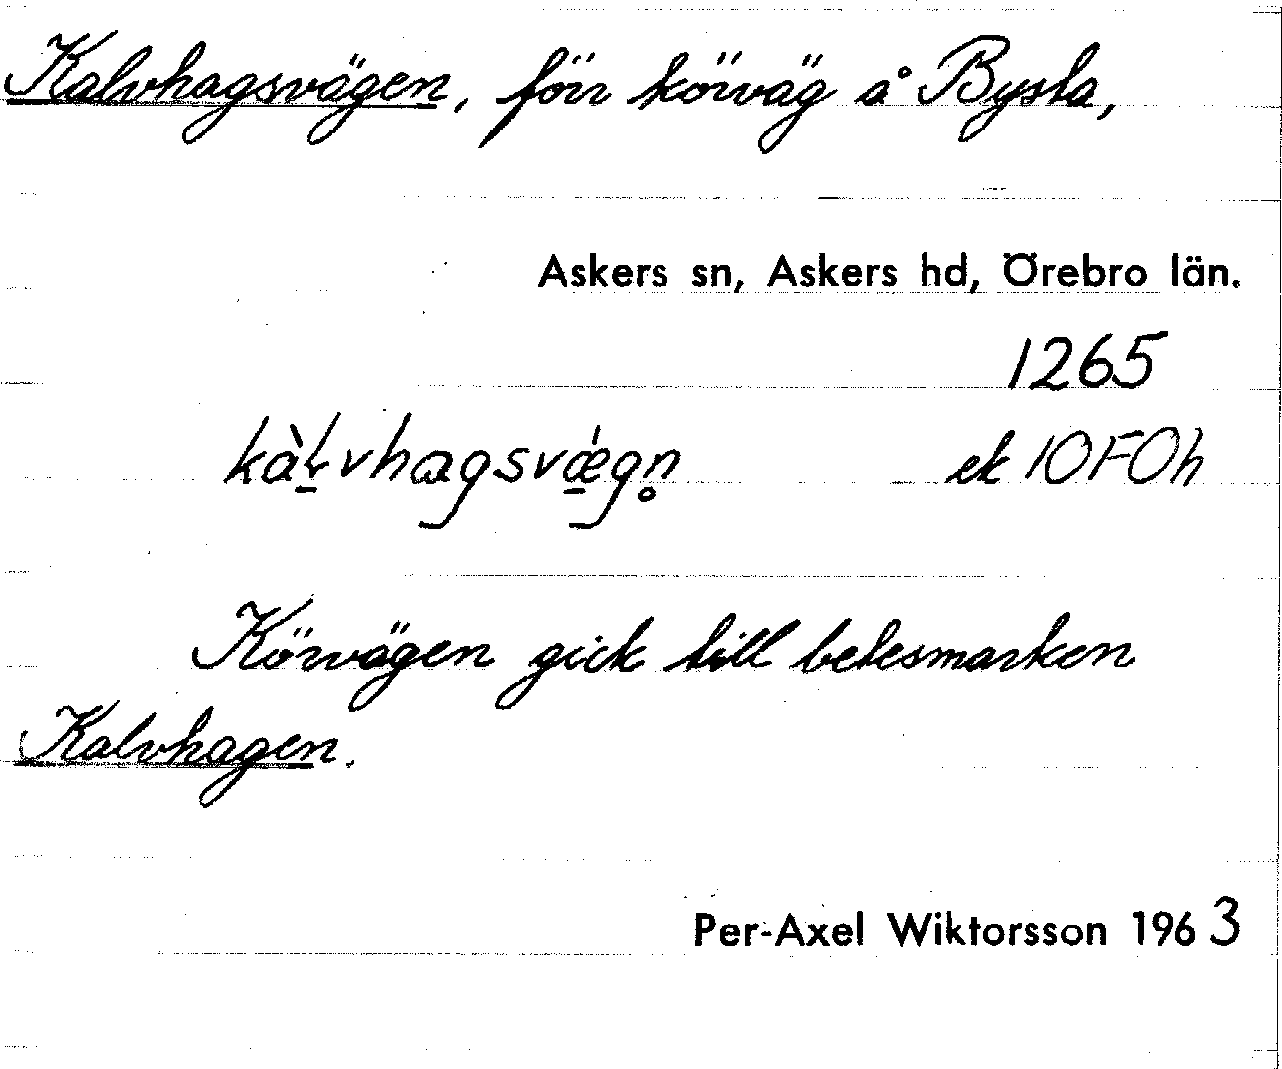 Kalvhagsvägen, förr körväg å Bysta,
Askers sn, Askers hd, Örebro län.
1265
kàḷvhagsvǽgn̥ ek 10F0h
Körvägen gick till betesmarken
Kalvhagen.
Per-Axel Wiktorsson 1963